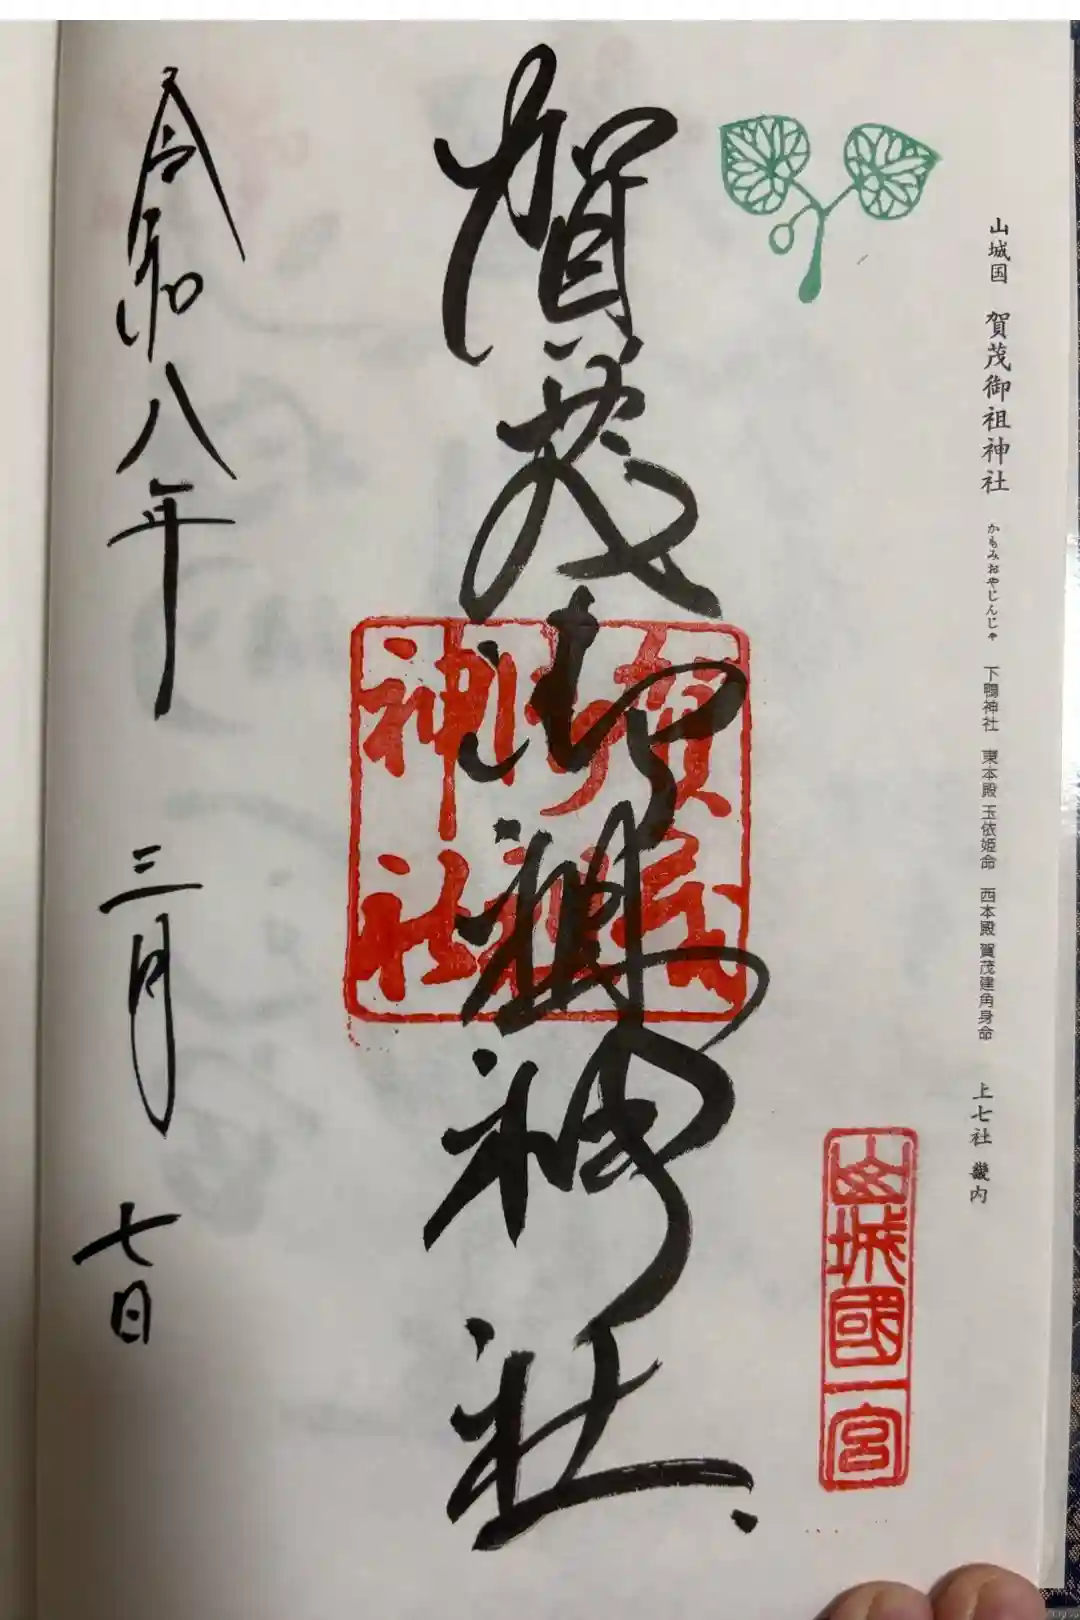 山城国 賀茂御祖神社 かもみおやじんじゃ 下鴨神社 東本殿 玉依姫命 西本殿 賀茂建角身命 上七社 畿内
山城國一宮
賀茂御祖神社
賀茂
御祖
神社
令和八年 三月 七日